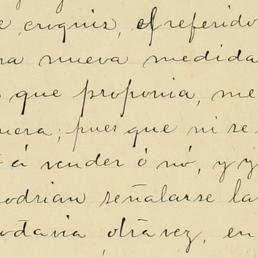 e croquis, el referido
ra nueva medida
que proponia, me
uera; pues que ni se
á vender ó nó, y y
odrian señalarse la
odavia otra vez, en